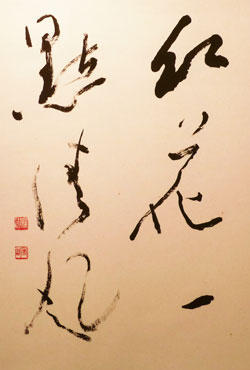 紅花一
點清